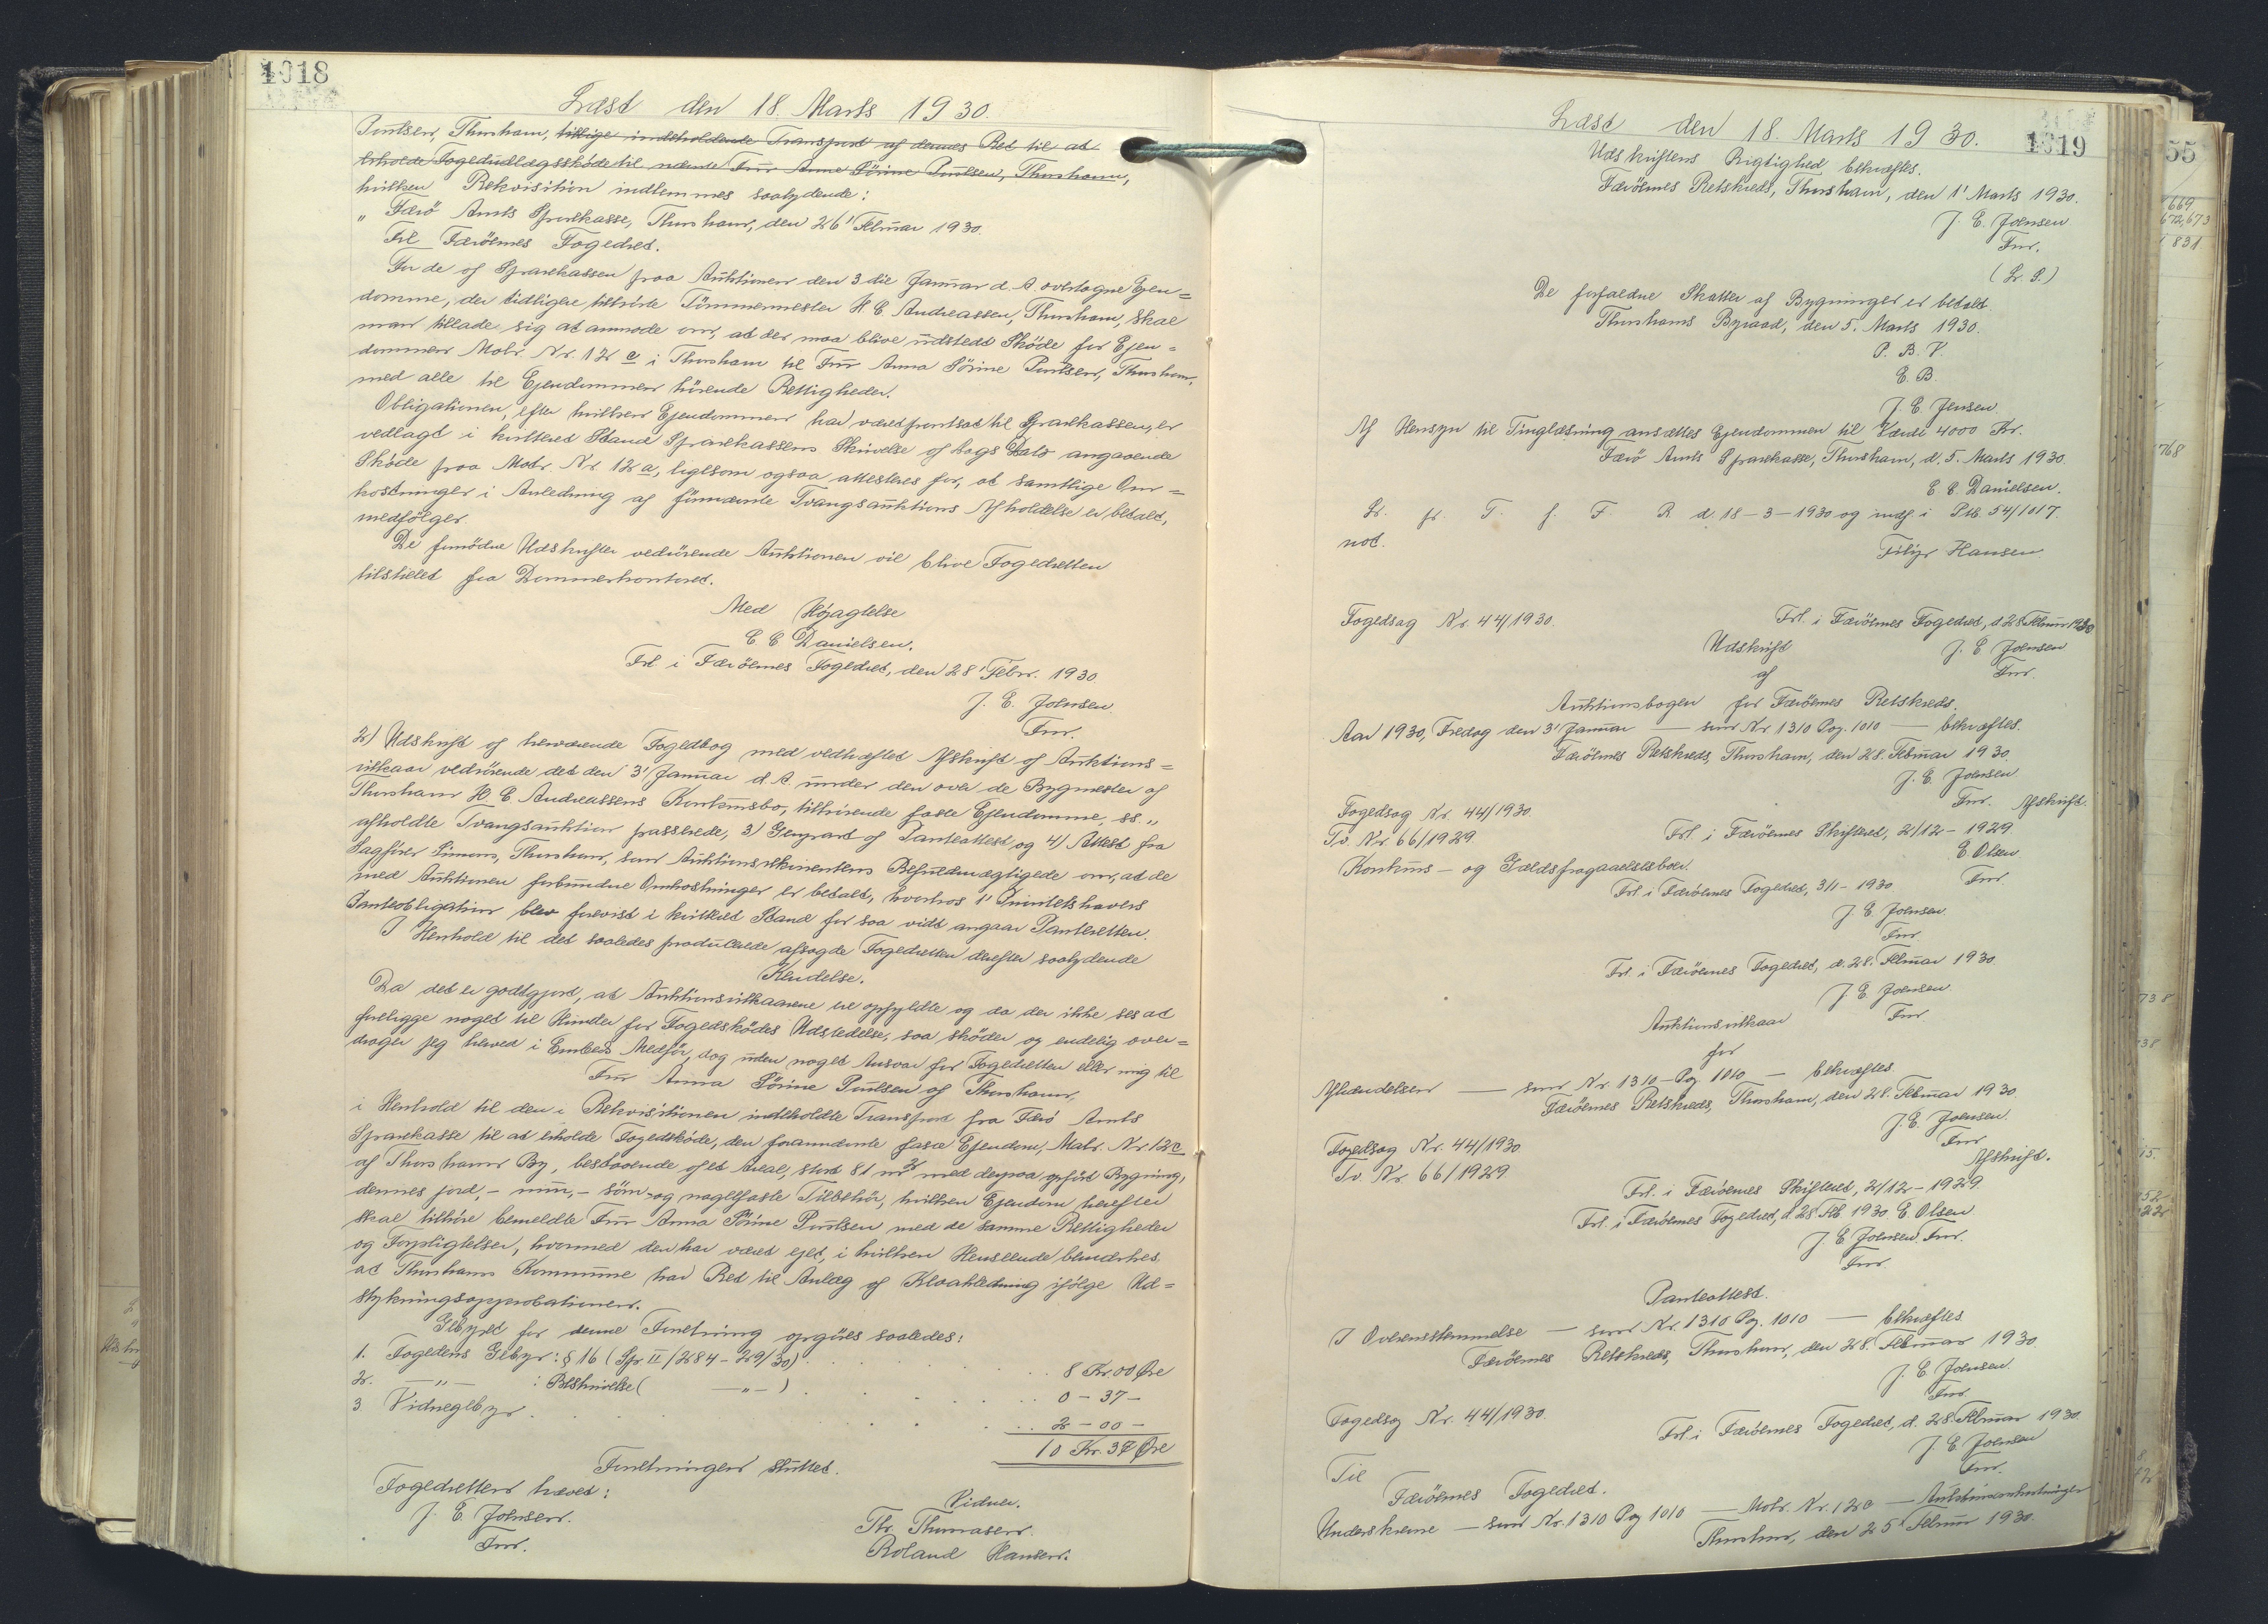 1018
Læst den 18. Marts 1930.
Poulsen, Thorshavn, tillige indeholdende Transport af dennes Ret til at
erholde Fogedudlægsskøde til nævnte Frú Anna Sörine Poúlsen, Thorshavn,
hvilken Rekvisition indlemmes saalydende:
" Færö Amts Sparekasse, Thorshavn, den 26' Febrúar 1930.
Til Færöernes Fogedret.
For de af Sparekassen paa Aúktionen den 3die Janúar d. A. overtagne Ejen=
domme, der tidligere tilhörte Tömmermester H C Andreassen, Thorshavn, skal
man tillade sig at anmode om, at der maa blive údstedt Sköde for Ejen=
dommen Matr. Nr. 12 c i Thorshavn til Frú Anna Sörine Poúlsen, Thorshavn,
med alle til Ejendommen hörende Rettigheder.
Obligationen, efter hvilken Ejendommen har været pantsat til Sparekassen, er
vedlagt i kvitteret Stand Sparekassens Skrivelse af Dags Dato angaaende
Sköde paa Matr. Nr. 12 a, ligesom ogsaa attesteres for, at samtlige Om=
kostninger i Anledning af fornævnte Tvangsaúktions Afholdelse er betalt,
medfölger.
De fornödne Udskrifter vedrörende Aúktionen vil blive Fogedretten
tilstillet fra Dommerkontoret.
Med Højagtelse
C C Danielsen.
Frl i Færöernes Fogedret, den 28' Febr. 1930
J. E. Johnsen.
Fm.
2) Udskrift af herværende Fogedbog med vedhæftet Afskrift af Aúktions=
vilkaar vedrörende det den 3' Janúar d. A. únder den over de Bygmester af
Thorshavn H. C. Andreassens Konkúrsbo, tilhörende faste Ejendomme, ss.,,
afholdte Tvangsaúktion passerede, 3) Genpart af Panteattest og 4) Attest fra
Sagförer Simons, Thorshavn, som Aúktionsrekvirentens Befúldmægtigede om, at de
med Aúktionen forbúndne Omkostninger er betalt, hvorhos 1' Prioritetshavers
Panteobligation blev forevist i kvitteret Stand for saa vidt angaar Panteretten.
I Henhold til det saaledes prodúcerede afsagde Fogedretten derefter saalydende
Kendelse.
Da det er godtgjort, at Aúktionsvilkaarene er opfyldte og da der ikke ses at
foreligge noget til Hinder for Fogedsködes Udstedelse, saa sköder og endelig over=
drager jeg herved i Embeds Medför, dog úden noget Ansvar for Fogedretten eller mig til
Frú Anna Sörine Poúlsen af Thorshavn,
i Henhold til den i Rekvisitionen indeholdte Transport fra Færö Amts
Sparekasse til at erholde Fogedsköde, den forannævnte faste Ejendom, Matr. Nr 12 c
af Thorshavns By, bestaaende af et Areal, stort 81 m² med derpaa opfört Bygning,
dennes jord,- múr,- söm- og nagelfaste Tilbehör, hvilken Ejendom herefter
skal tilhöre bemeldte Frú Anna Sörine Poúlsen med de samme Rettigheder
og Forpligtelser, hvormed den har været ejet, i hvilken Henseende bemærkes
at Thorshavns Kommúne har Ret til Anlæg af Kloakledning ifölge Ud=
stykningsapprobationen.
Gebyret for denne Forretning opgöres saaledes:
1. Fogedens Gebyr: § 16 (Spr II/284-29/30) . . . 8 Kr. 00 Öre
2. —„— : Beskrivelse ( —„— ) . . . 0 - 37 -
3 Vidnegebyr . . . 2 - 00 -
10 Kr. 37 Öre
Forretningen slúttet.
Fogedretten hævet:
J. E. Johnsen.
Fm.
Vidner.
Th. Thomasen.
Roland Hansen.
1019
Læst den 18. Marts 1930.
Udskriftens Rigtighed bekræftes.
Færöernes Retskreds, Thorshavn, den 1' Marts 1930.
J. E. Johnsen
Fm.
(L. S.)
De forfaldne Skatter af Bygninger er betalt.
Thorshavns Byraad, den 5. Marts 1930.
P. B. V.
E. B.
J. C. Jensen.
Af Hensyn til Tinglæsning ansættes Ejendommen til Værdi 4000 Kr.
Færö Amts Sparekasse, Thorshavn, d. 5. Marts 1930.
C C. Danielsen.
L. f. T. f. F. R. d. 18-3-1930 og indf. i Ptb. 54/1017.
not.
Filip Hansen.
Fogedsag Nr. 44/1930.
Frl. i Færöernes Fogedret, d 28 Febrúar 1930
J. E. Johnsen
Fm.
Udskrift
af
Aúktionsbogen for Færöernes Retskreds.
Aar 1930, Fredag den 3' Janúar — som Nr 1310 Pag. 1010 — bekræftes.
Færöernes Retskreds, Thorshavn, den 28. Febrúar 1930.
J. E. Johnsen.
Fm. Afskrift.
Fogedsag Nr. 44/1930.
Tv. Nr. 66/1929.
Frl. i Færöernes Skifteret, 2/12-1929
E. Olsen.
Fm.
Konkúrs- og Gældsfragaaelsesboer.
Frl. i Færöernes Fogedret, 3/1-1930.
J. E. Johnsen.
Fm.
Frl. i Færöernes Fogedret, d. 28. Febrúar 1930.
J. E. Johnsen.
Fm
Aúktionsvilkaar
for
Afhændelsen — som Nr. 1310 - Pag 1010 — bekræftes.
Færöernes Retskreds, Thorshavn, den 28. Febrúar 1930.
J. E. Johnsen.
Fm
Afskrift.
Fogedsag Nr. 44/1930
Tv. Nr. 66/1929.
Frl. i Færöernes Skifteret, 2/12-1929
Frl. i Færöernes Fogedret, d 28 Feb. 1930. E. Olsen
J. E. Johnsen, Fm.
Fm
Panteattest.
I Overensstemmelse — som Nr. 1310 Pag. 1010 — bekræftes
Færöernes Retskreds, Thorshavn, den 28. Febrúar 1930.
J. E. Johnsen.
Fm.
Fogedsag Nr. 44/1930.
Frl. i Færöernes Fogedret, d. 28. Febrúar 1930.
J. E. Johnsen
Fm.
Til
Færöernes Fogedret.
Underskrevne — som Nr. 1310 Pag 1010 — Matr. Nr. 12 c — Aúktionsomkostninger
Thorshavn, den 25' Febrúar 1930.
55
669
672,673
831
768
738
38
15.